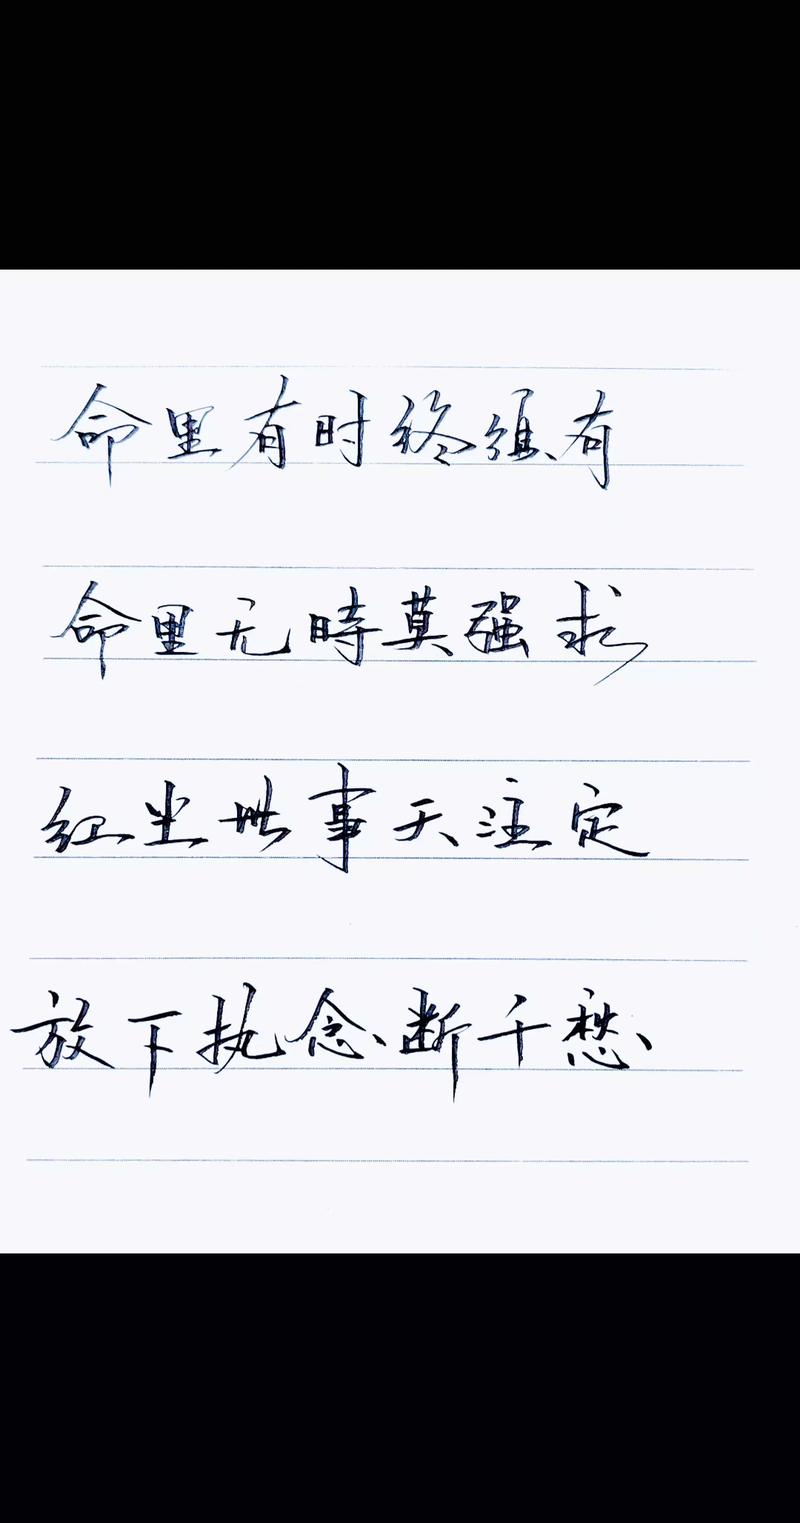 命里有时终须有
命里无時莫强求
红尘世事天注定
放下执念断千愁